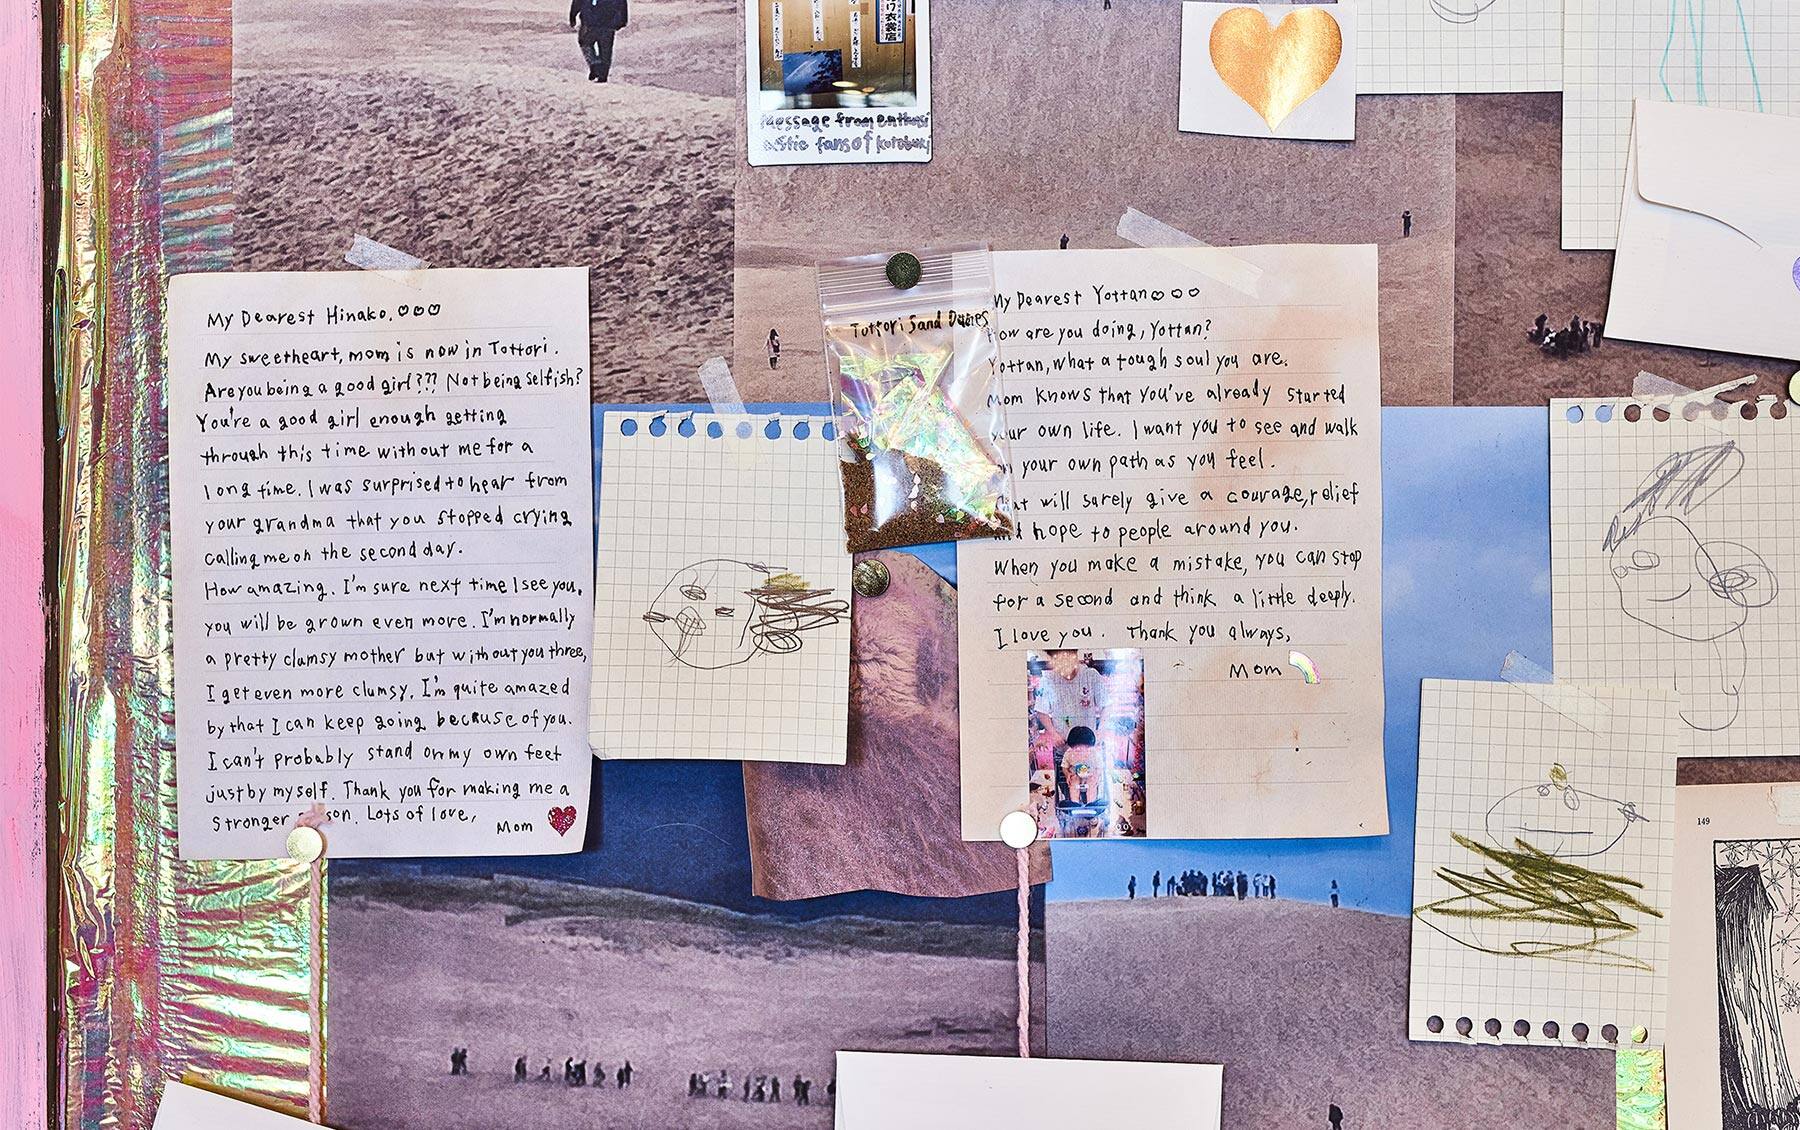 け衣裳店
Message from enthusi
astic fans of kotobuki
My Dearest Hinako.♡♡♡
My sweetheart, mom is now in Tottori.
Are you being a good girl??? Not being selfish?
You're a good girl enough getting
through this time without me for a
long time. I was surprised to hear from
your grandma that you stopped crying
calling me on the second day.
How amazing. I'm sure next time I see you,
you will be grown even more. I'm normally
a pretty clumsy mother but without you three,
I get even more clumsy. I'm quite amazed
by that I can keep going because of you.
I can't probably stand on my own feet
just by myself. Thank you for making me a
Stronger son. Lots of love,
Mom
Tottori Sand Dunes
My Dearest Yottan♡♡♡
How are you doing, Yottan?
Yottan, what a tough soul you are.
Mom knows that you've already started
your own life. I want you to see and walk
on your own path as you feel.
That will surely give a courage, relief
and hope to people around you.
When you make a mistake, you can stop
for a second and think a little deeply.
I love you. Thank you always,
Mom
149